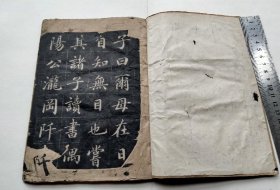 子曰爾母在日
自知無目也嘗
其諸子讀書偶
陽公瀧岡阡
阡